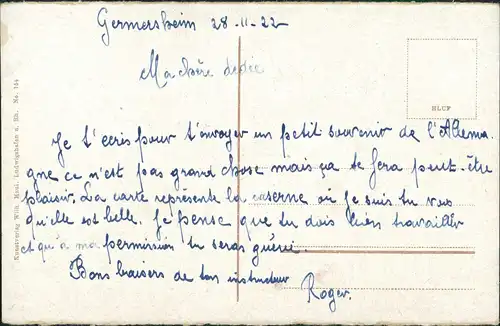 Germersheim 28-11-22
Ma chère dédée
HLCF
Je t'ecris pour t'envoyer un petit souvenir de l'Allema
gne ce n'est pas grand chose mais ça te fera peut-être
plaisir. La carte représente la caserne où je suis tu vois
qu'elle est belle. Je pense que tu dois bien travailler
et qu'a ma permission tu seras guérie.
Bons baisers de ton instructeur
Roger.
Kunstverlag Wilh. Ludwigshafen a. Rh. No. 154